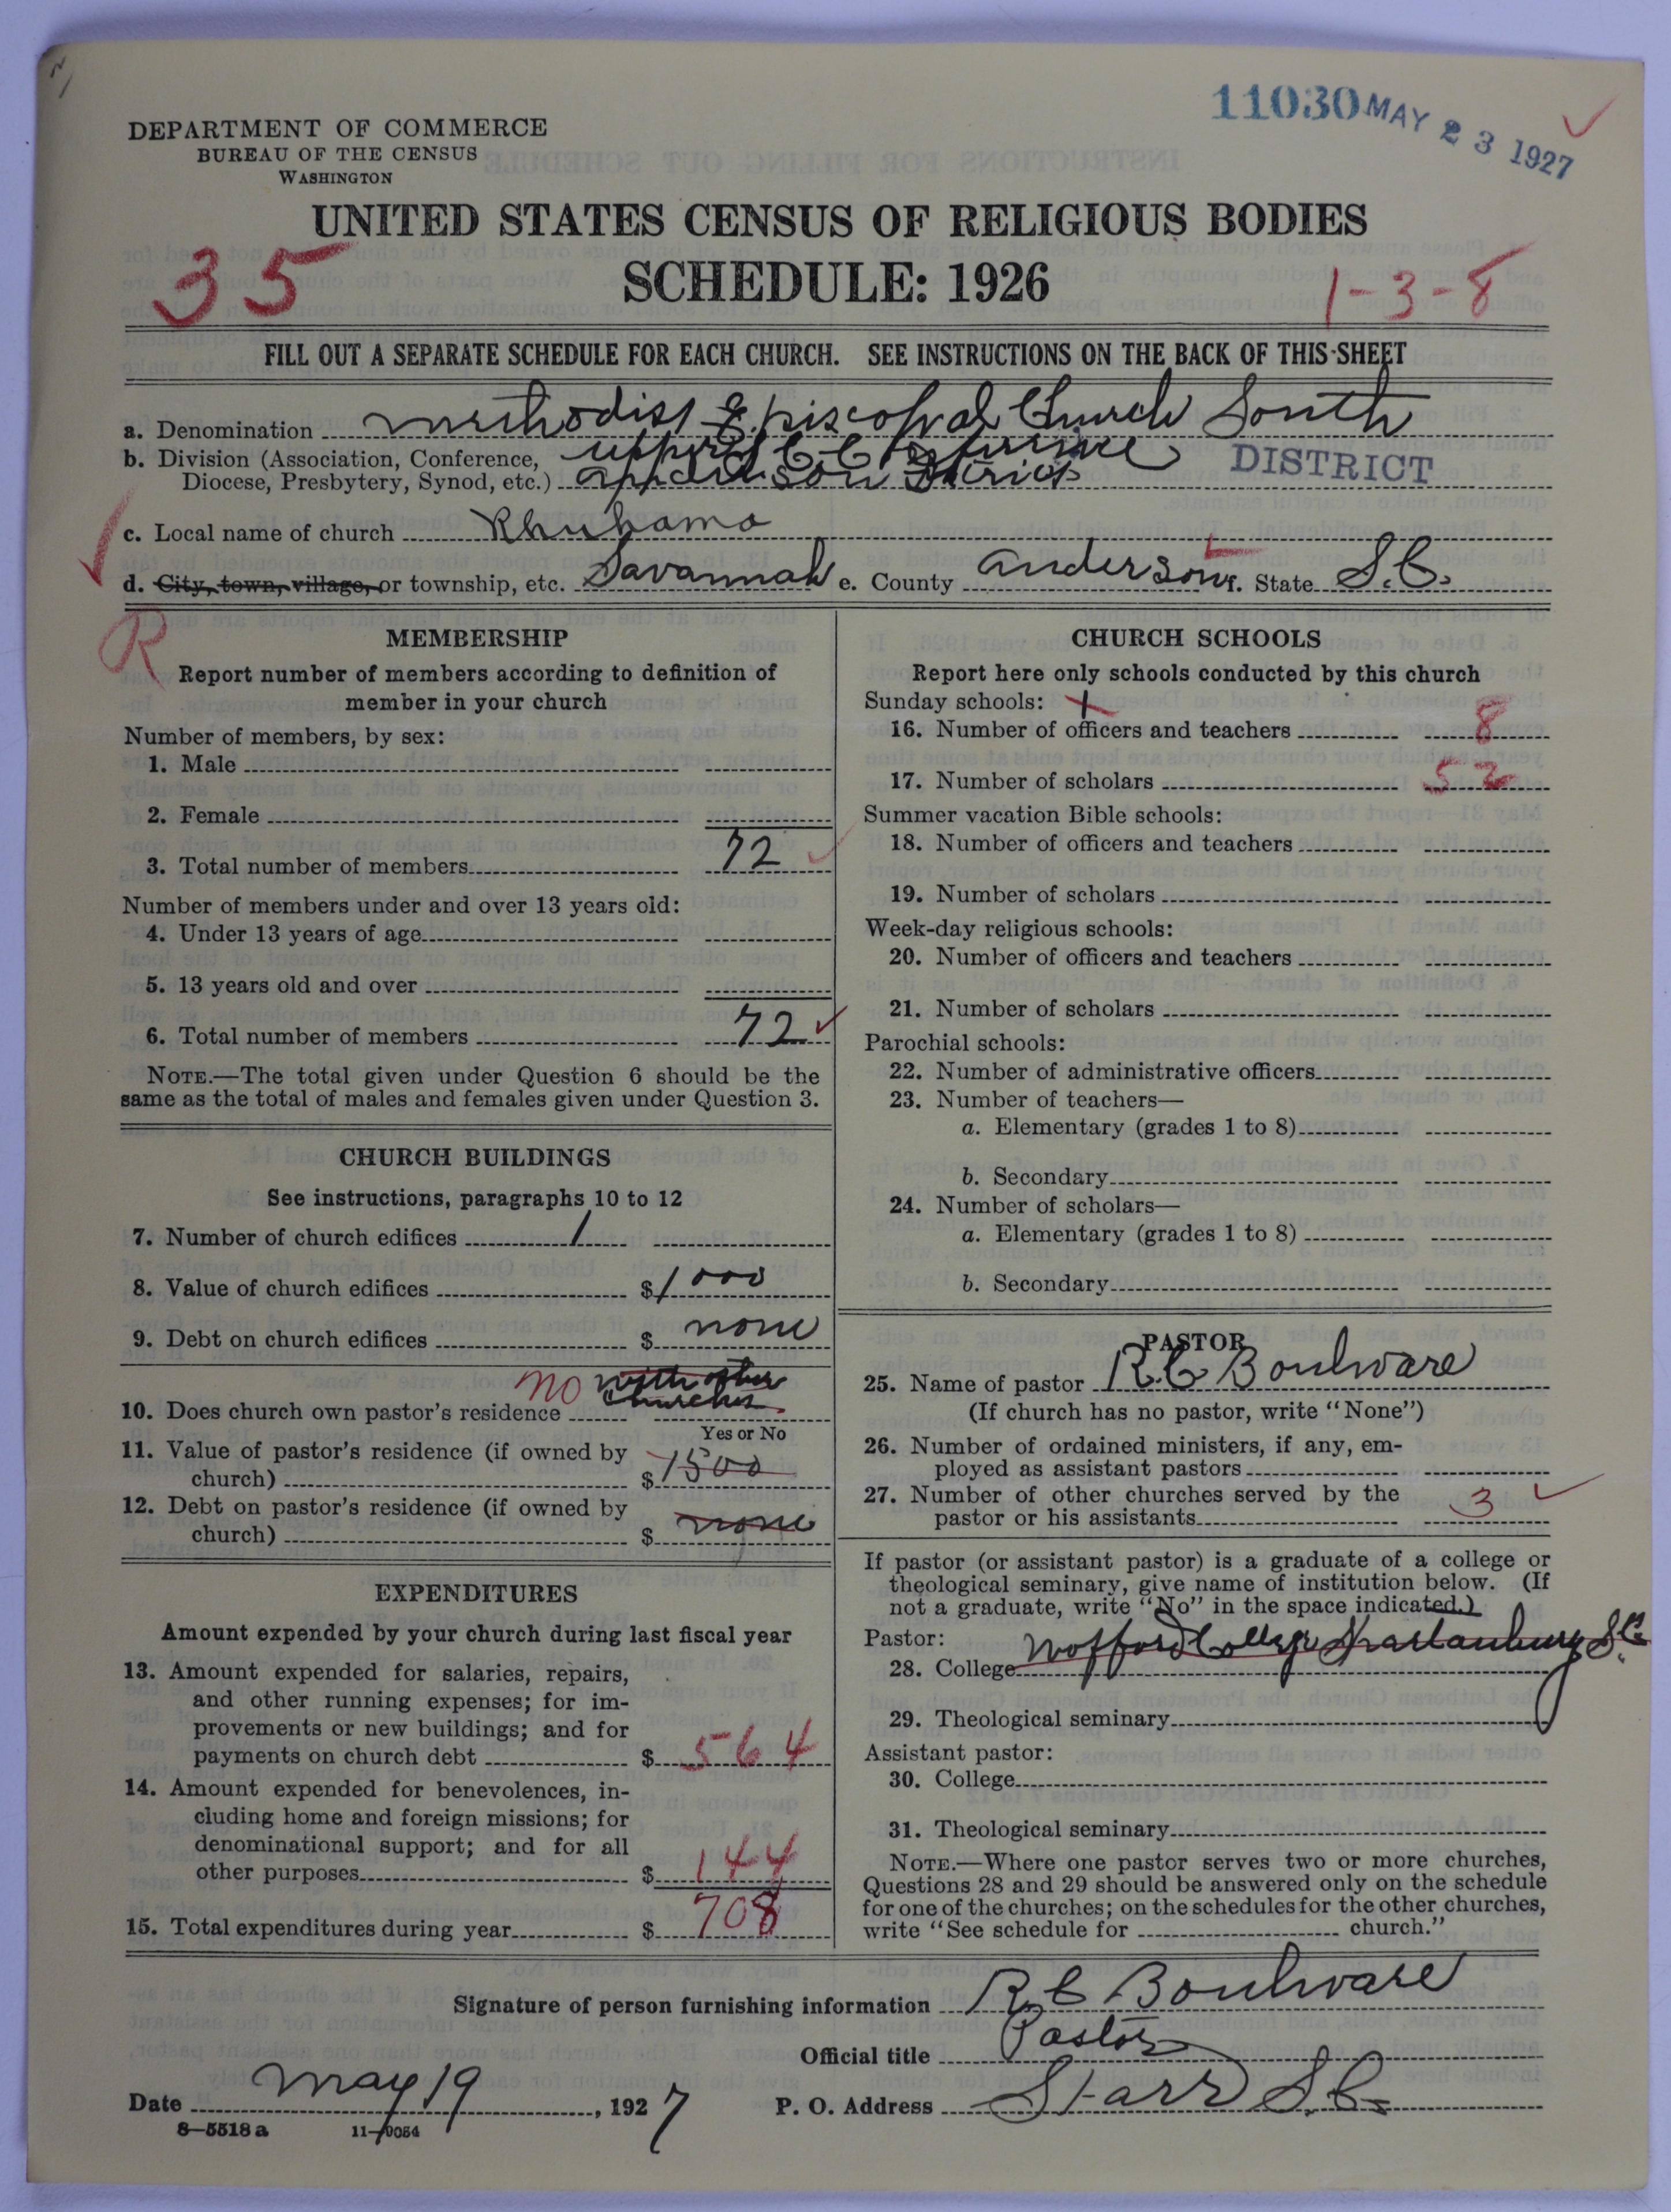 11030 MAY 23 1927
DEPARTMENT OF COMMERCE
BUREAU OF THE CENSUS
WASHINGTON
UNITED STATES CENSUS OF RELIGIOUS BODIES
35
SCHEDULE: 1926
1-3-8
FILL OUT A SEPARATE SCHEDULE FOR EACH CHURCH. SEE INSTRUCTIONS ON THE BACK OF THIS SHEET
a. Denomination Methodist Episcopal Church South
b. Division (Association, Conference, upper S. C. Conference DISTRICT
Diocese, Presbytery, Synod, etc.) Anderson District
c. Local name of church Rhuhama
d. City, town, village, or township, etc. Savannah e. County Anderson f. State S.C.
R
MEMBERSHIP
Report number of members according to definition of
member in your church
Number of members, by sex:
1. Male
2. Female
3. Total number of members 72
Number of members under and over 13 years old:
4. Under 13 years of age
5. 13 years old and over
6. Total number of members 72
NOTE.—The total given under Question 6 should be the
same as the total of males and females given under Question 3.
CHURCH BUILDINGS
See instructions, paragraphs 10 to 12
7. Number of church edifices 1
8. Value of church edifices $1000
9. Debt on church edifices $ none
no with other
churches
10. Does church own pastor's residence
Yes or No
11. Value of pastor's residence (if owned by
church) $1500
12. Debt on pastor's residence (if owned by
church) $ none
EXPENDITURES
Amount expended by your church during last fiscal year
13. Amount expended for salaries, repairs,
and other running expenses; for im-
provements or new buildings; and for
payments on church debt $ 564
14. Amount expended for benevolences, in-
cluding home and foreign missions; for
denominational support; and for all
other purposes $ 144
15. Total expenditures during year $ 708
CHURCH SCHOOLS
Report here only schools conducted by this church
Sunday schools:
16. Number of officers and teachers 8
17. Number of scholars 52
Summer vacation Bible schools:
18. Number of officers and teachers
19. Number of scholars
Week-day religious schools:
20. Number of officers and teachers
21. Number of scholars
Parochial schools:
22. Number of administrative officers
23. Number of teachers—
a. Elementary (grades 1 to 8)
b. Secondary
24. Number of scholars—
a. Elementary (grades 1 to 8)
b. Secondary
PASTOR
25. Name of pastor R.C Boulware
(If church has no pastor, write "None")
26. Number of ordained ministers, if any, em-
ployed as assistant pastors
27. Number of other churches served by the
pastor or his assistants 3
If pastor (or assistant pastor) is a graduate of a college or
theological seminary, give name of institution below. (If
not a graduate, write "No" in the space indicated.)
Pastor:
28. College Wofford College Spartanburg S.C.
29. Theological seminary
Assistant pastor:
30. College
31. Theological seminary
NOTE.—Where one pastor serves two or more churches,
Questions 28 and 29 should be answered only on the schedule
for one of the churches; on the schedules for the other churches,
write "See schedule for church."
Signature of person furnishing information R C Boulware
Official title Pastor
Date May 19, 1927 P. O. Address Starr S.C.
8-5518 a 11-9064